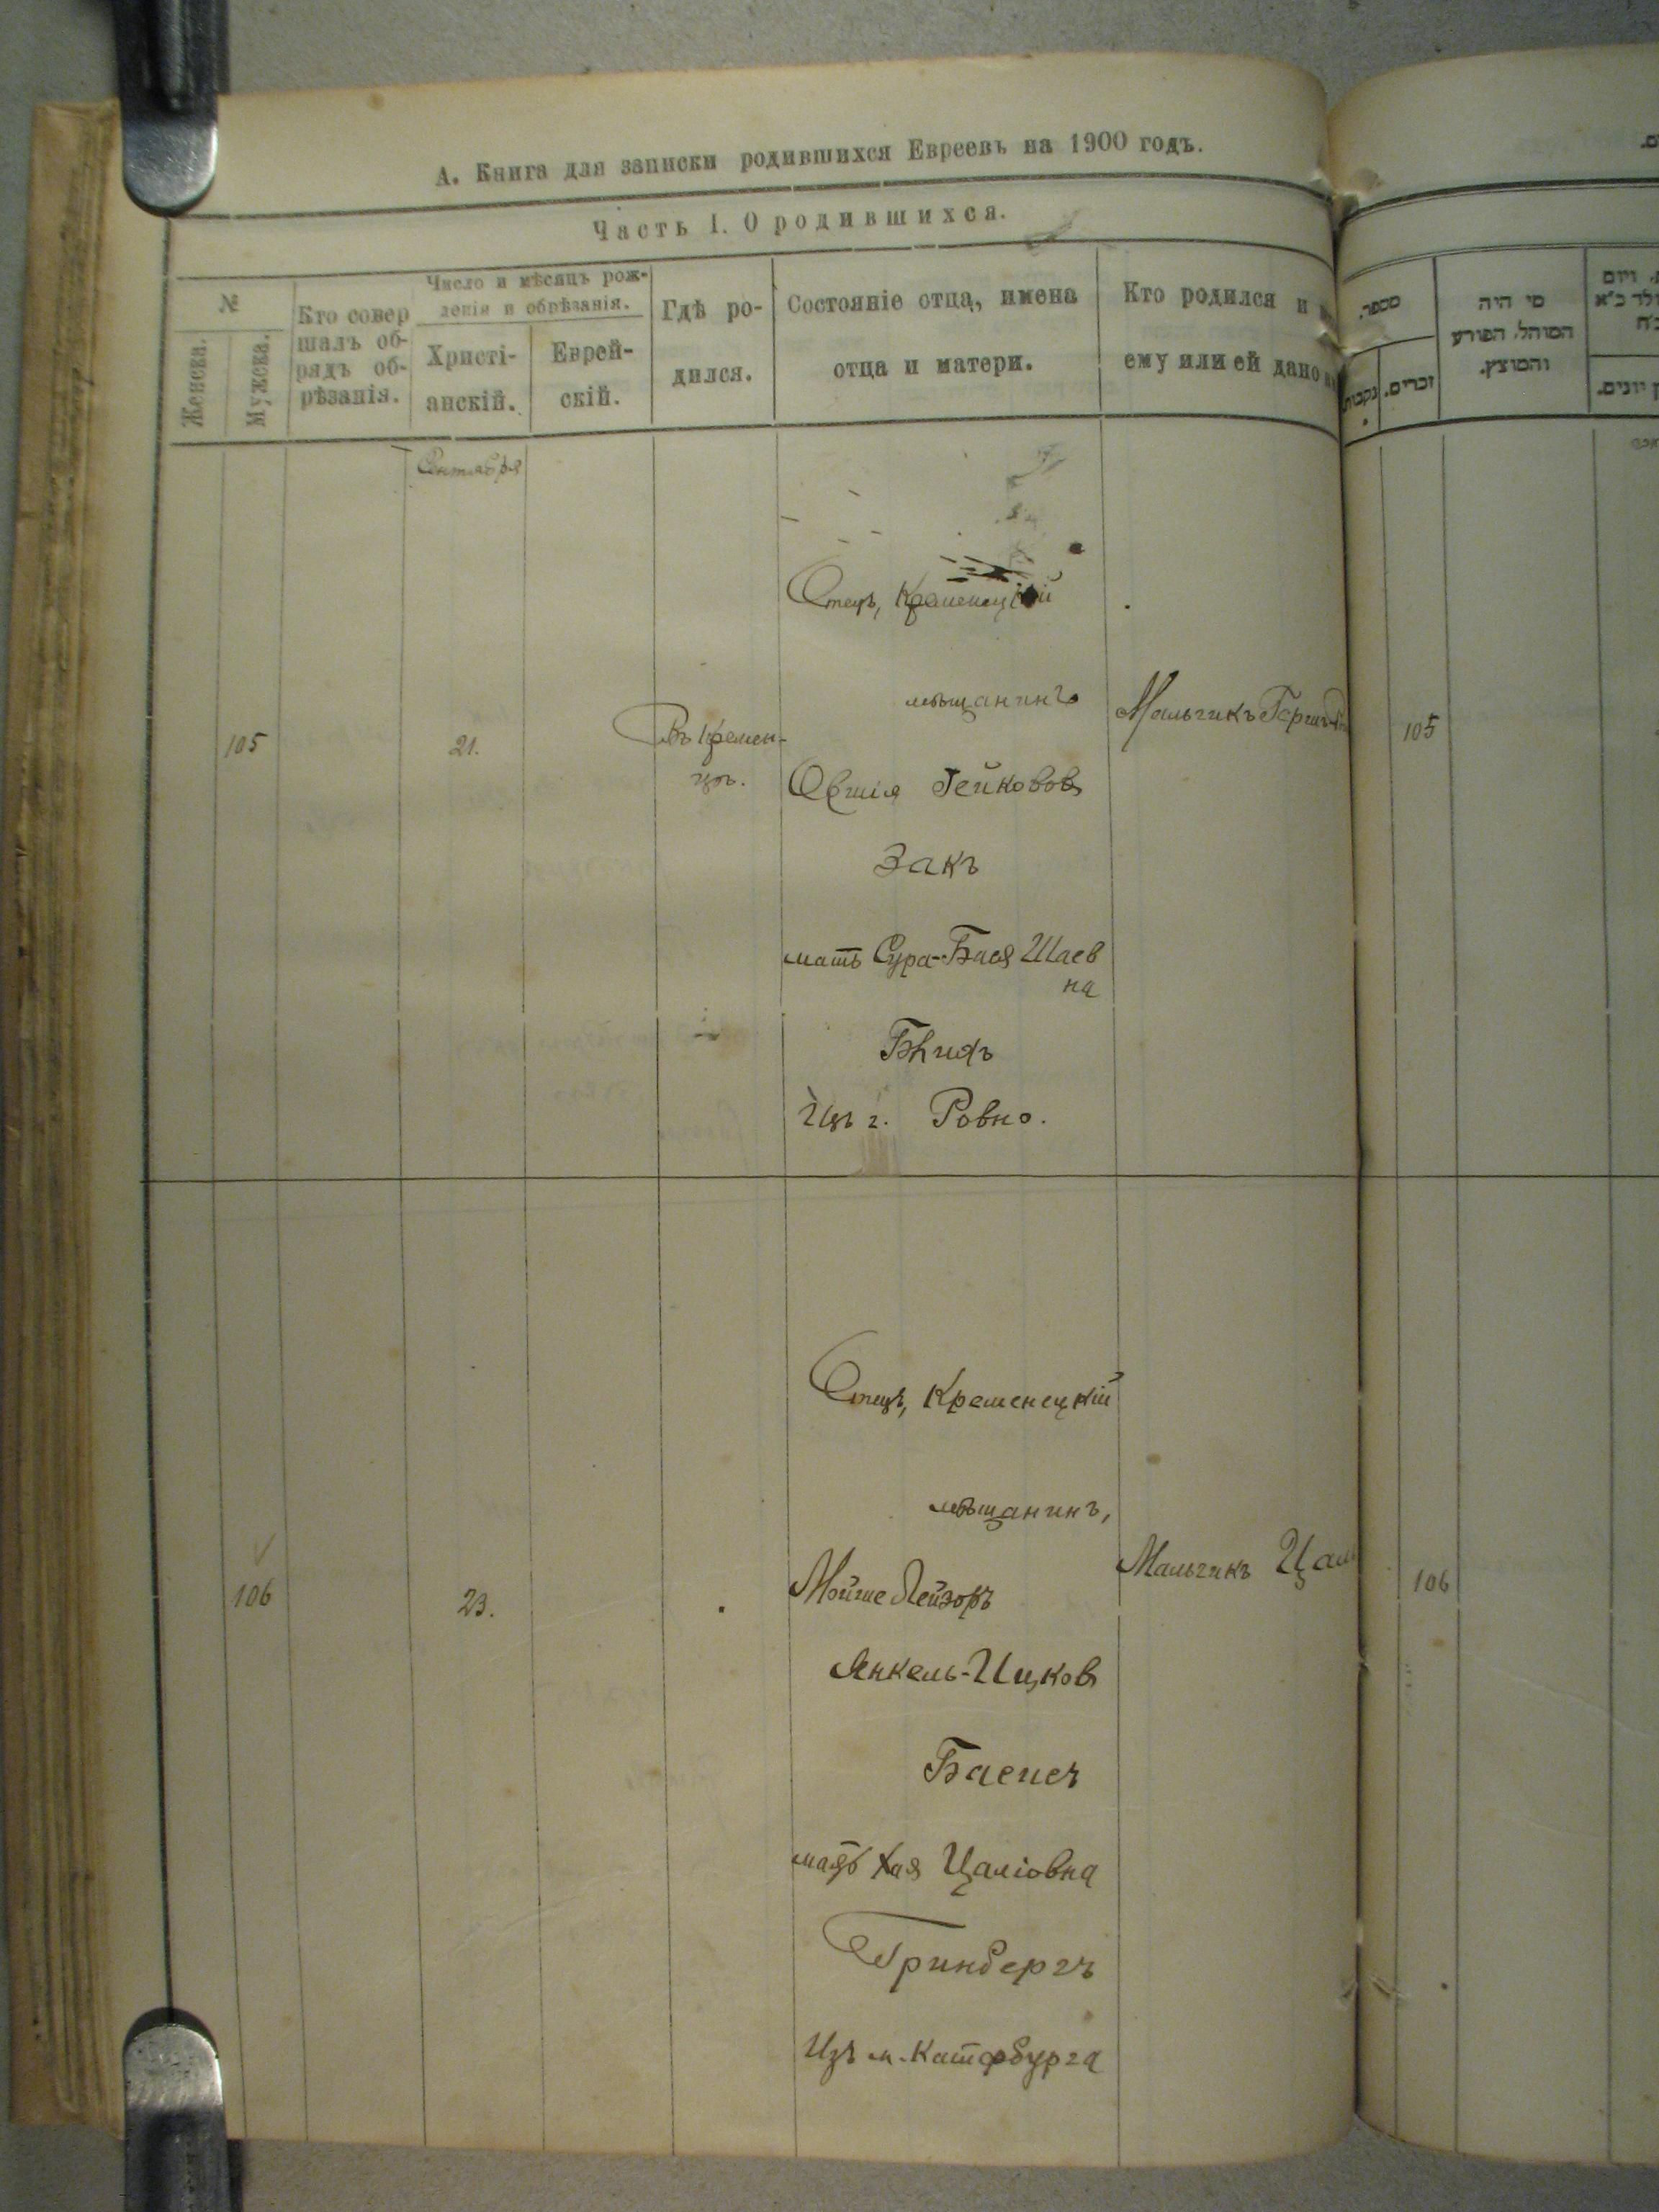 А. Книга для записки родившихся Евреевъ на 1900 годъ.
Часть I. О родившихся.
№
Женска.
Мужска.
Кто совер
шалъ об-
рядъ об-
рѣзанія.
Число и мѣсяцъ рож-
денія и обрѣзанія.
Христі-
анскій.
Еврей-
скій.
Гдѣ ро-
дился.
Состояніе отца, имена
отца и матери.
Кто родился и
ему или ей дано
Сентября
105
21.
Въ Кремен-
цѣ.
Отецъ, Кременецкій
мѣщанинъ
Овшія Гейковов
Закъ
мать Сура-Бася Шаев
на
Изъ г. Ровно.
Мальчикъ Гершъ-
106
23.
Отецъ, Кременецкій
мѣщанинъ,
Мойше Лейзоръ
Янкель-Ицков
мать Хая Цаліовна
Гринбергъ
Изъ м. Катербурга
Мальчикъ Цал
מספר.
נקבות
זכרים.
מי היה
המוהל, הפורע
והמוצץ.
105
106